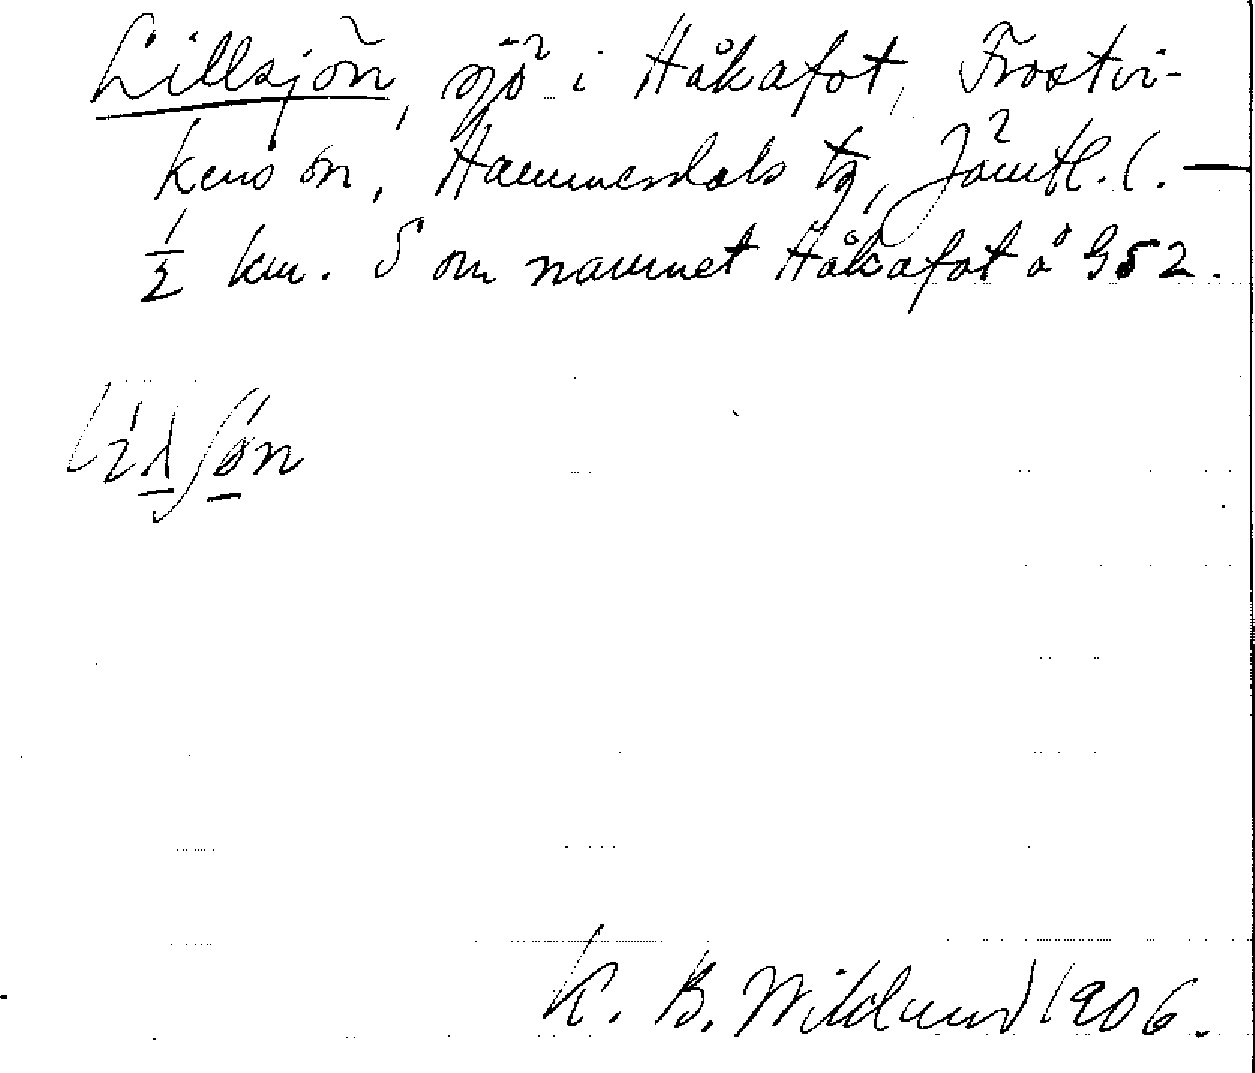 Lillsjön, sjö i Håkafot, Frostvi-
kens sn, Hammerdals tg, Jämtl. l. —
½ km. S om namnet Håkafot å G52.
K. B. Wiklund 1906.